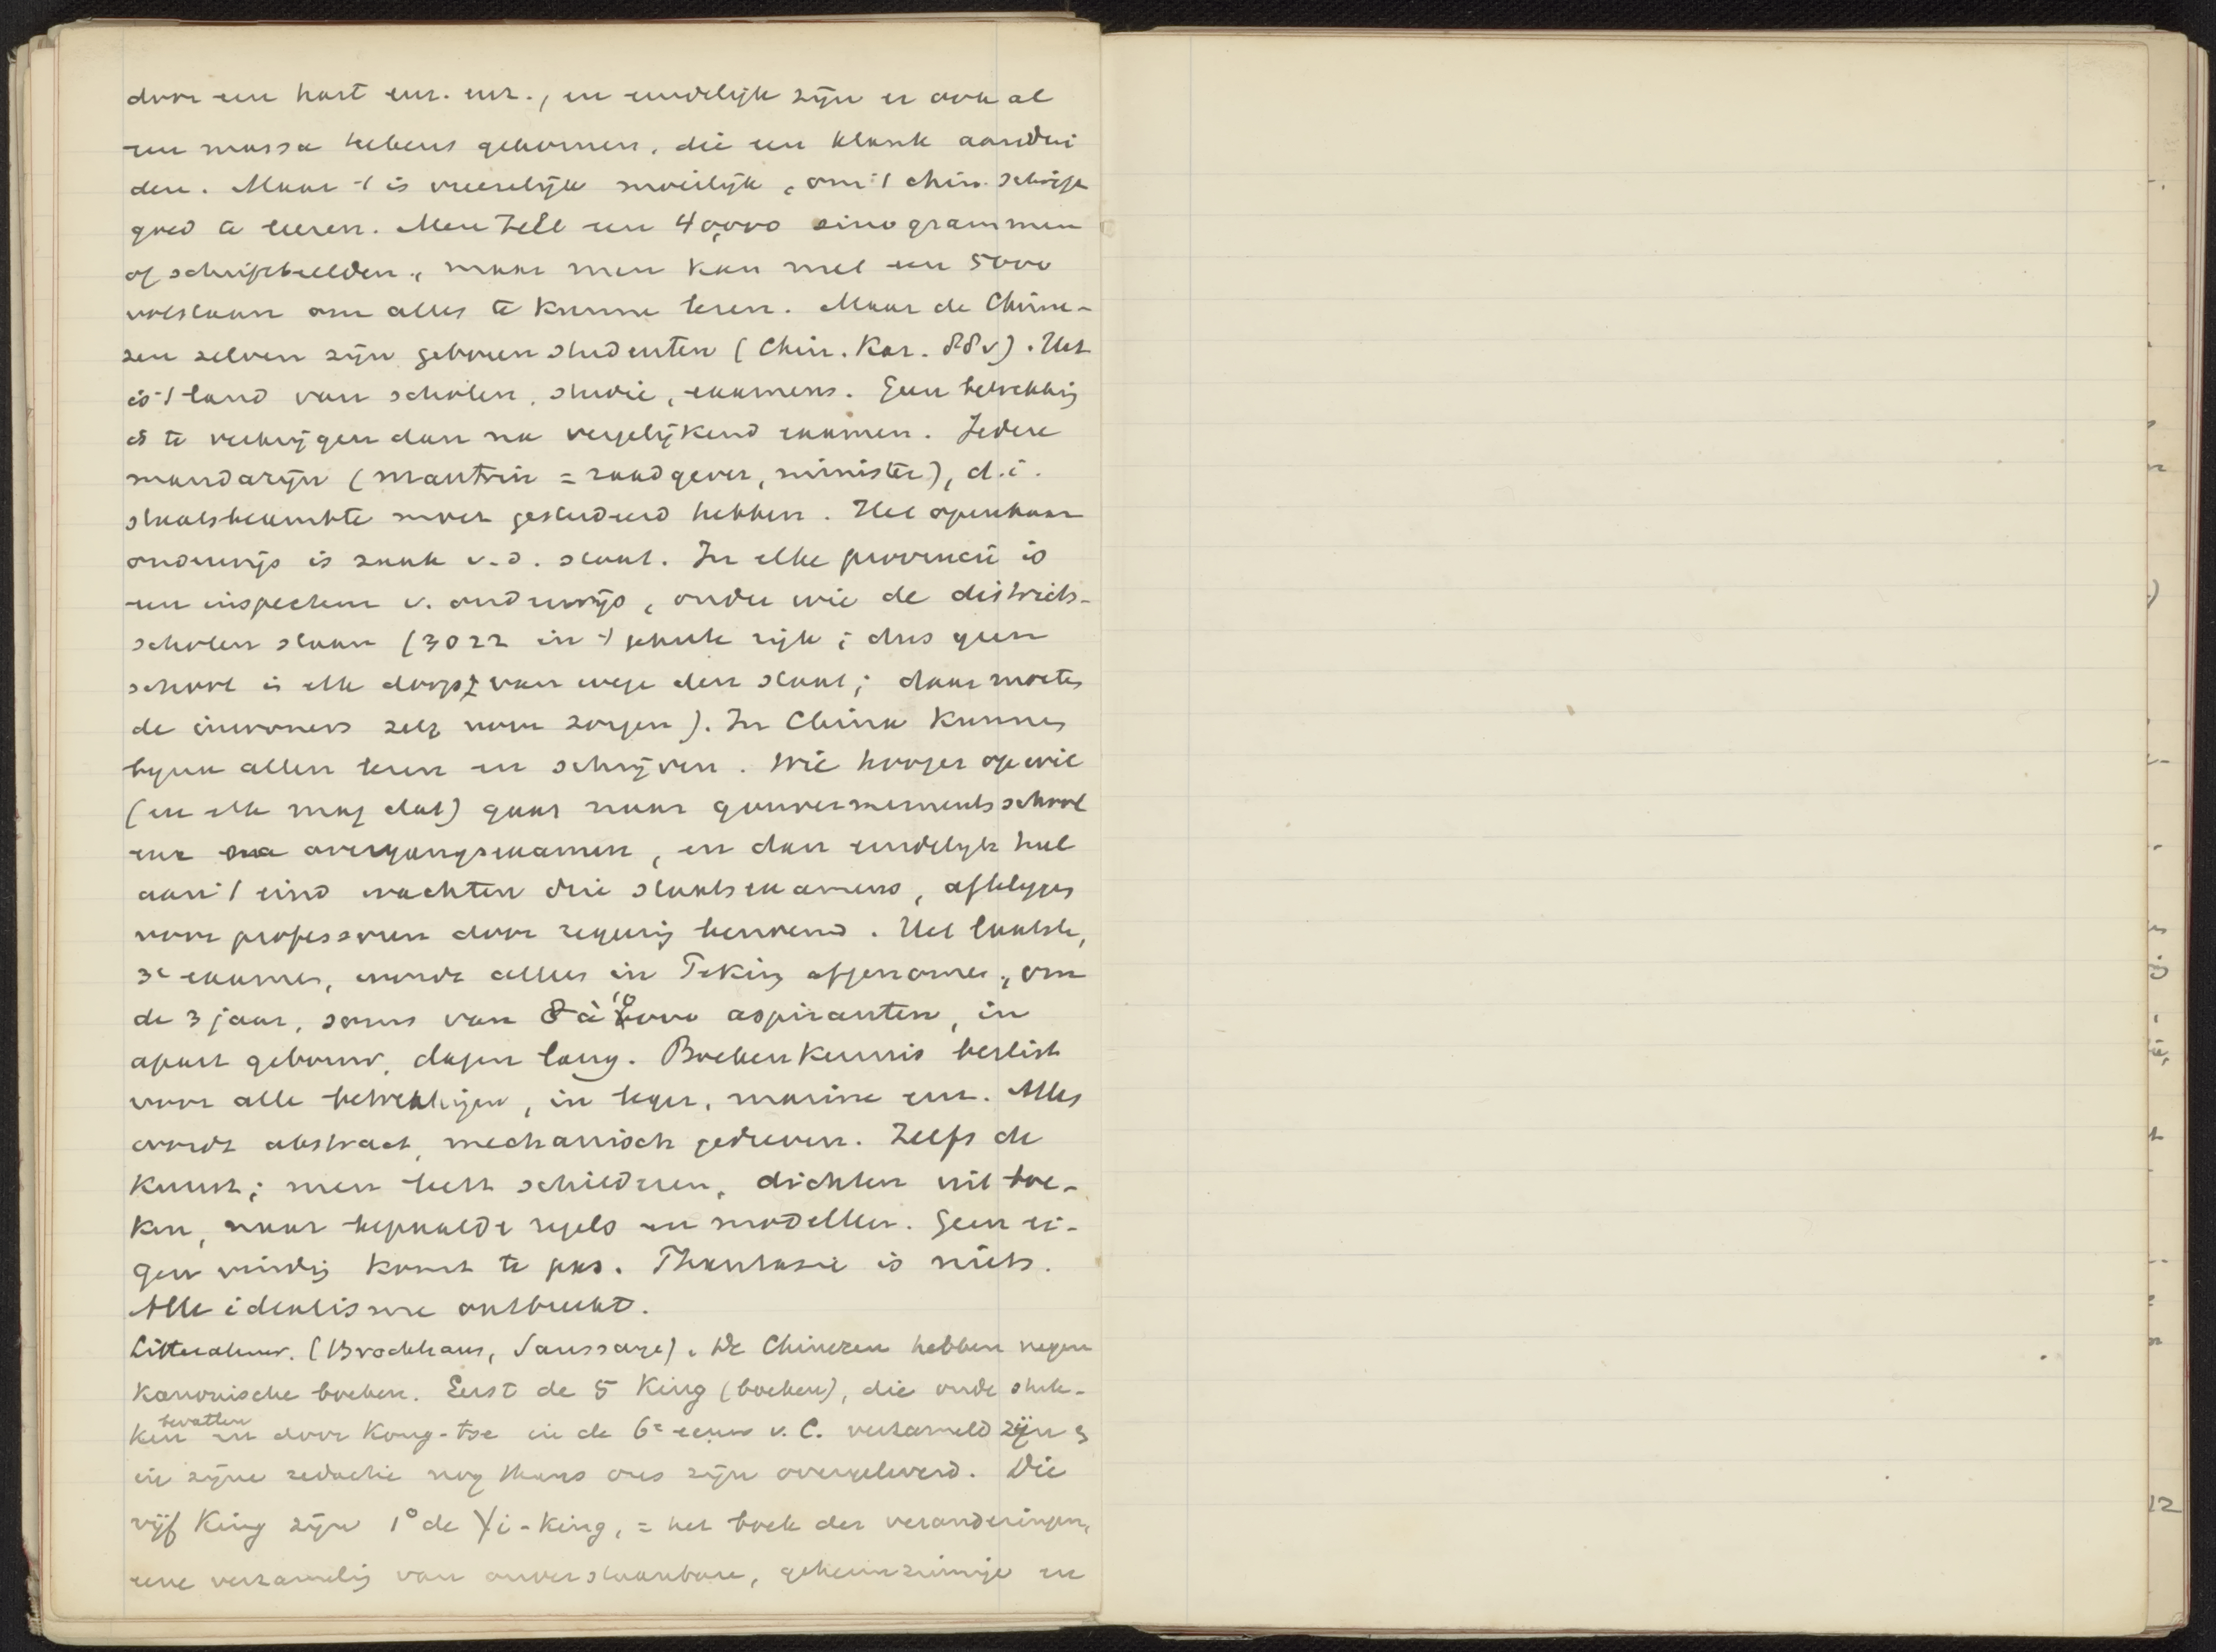 door een hart enz. enz., en eindelijk zijn er ook al
een massa tekens gekomen, die een klank aandui
den. Maar 't is vreeselijk moeilijk, om 't chin. schrift
goed te leeren. Men telt een 40,000 sinogrammen
of schriftbeelden, maar men kan met een 5000
volstaan om alles te kunne lezen. Maar de Chine-
zen zelven zijn geboren studenten (Chin. Kar. 88v). Het
is 't land van scholen, studie, examens. Geen betrekking
is te verkrijgen dan na vergelijkend examen. Iedere
mandarijn (mantrin = raadgever, minister), d.i.
staatsbeambte moet gestudeerd hebben. Het openbaar
onderwijs is zaak v.d. staat. In elke provincie is
een inspecteur v. onderwijs, onder wie de districts-
scholen staan (3022 in 't gansche rijk; dus geen
school in elk dorp van wege den staat; daar moeten
de inwoners zelf voor zorgen). In China kunnen
bijna allen lezen en schrijven. Wie hooger op wil
(en elk mag dat) gaat naar gouvernementsschool
enz na overgangsexamen, en dan eindelijk heel
aan 't eind wachten drie staatsexamens, afteleggen
voor professoren door regering benoemd. Het laatste,
3e examen, wordt alleen in Peking afgenomen, om
de 3 jaar, soms van 8 à 10000 aspiranten, in
apart gebouw, dagen lang. Boekenkennis beslist
voor alle betrekkingen, in leger, marine enz. Alles
wordt abstract, mechanisch gedreven. Zelfs de
kunst; men leert schilderen, dichten uit boe-
ken, naar bepaalde regels en modellen. Geen ei-
gen vinding komt te pas. Phantasie is niets.
Alle idealisme ontbreekt.
Litteratuur. (Brockhaus, Saussaye). De Chinezen hebben negen
kanonische boeken. Eerst de 5 King (boeken), die oude stuk-
ken bevatten en door Kong-tse in de 6e eeuw v. C. verzameld zijn en
in zijne redactie nog thans ons zijn overgeleverd. Die
vijf King zijn 1° de Yi-King, = het boek der veranderingen,
eene verzameling van onverstaanbare, geheimzinnige en